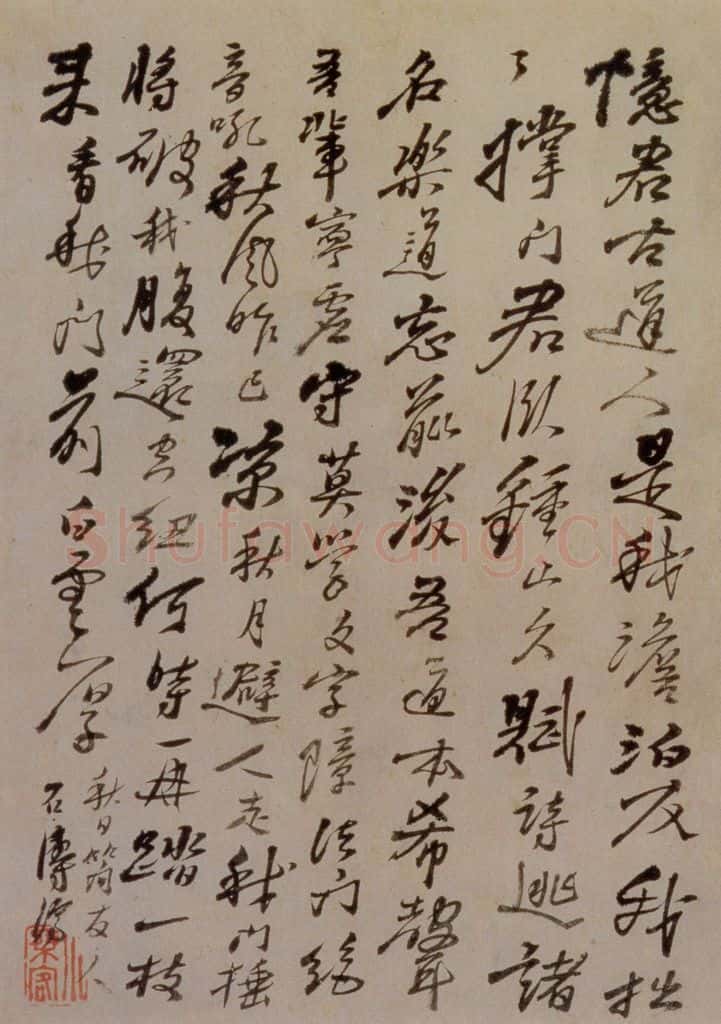 憶君古道人是我澹泊友我拙
々撑门君卧鍾山久賦詩逃諸
名樂道忘後吾道本希聲
吾輩寧虛守莫學文字障法门絕
音吼秋風昨已涼秋月避人走我门捶
將破我腹還空紐何時一再踏一枝
来看我门前白雲厚
秋日簡友人
石濤濟
Shufawang.CN